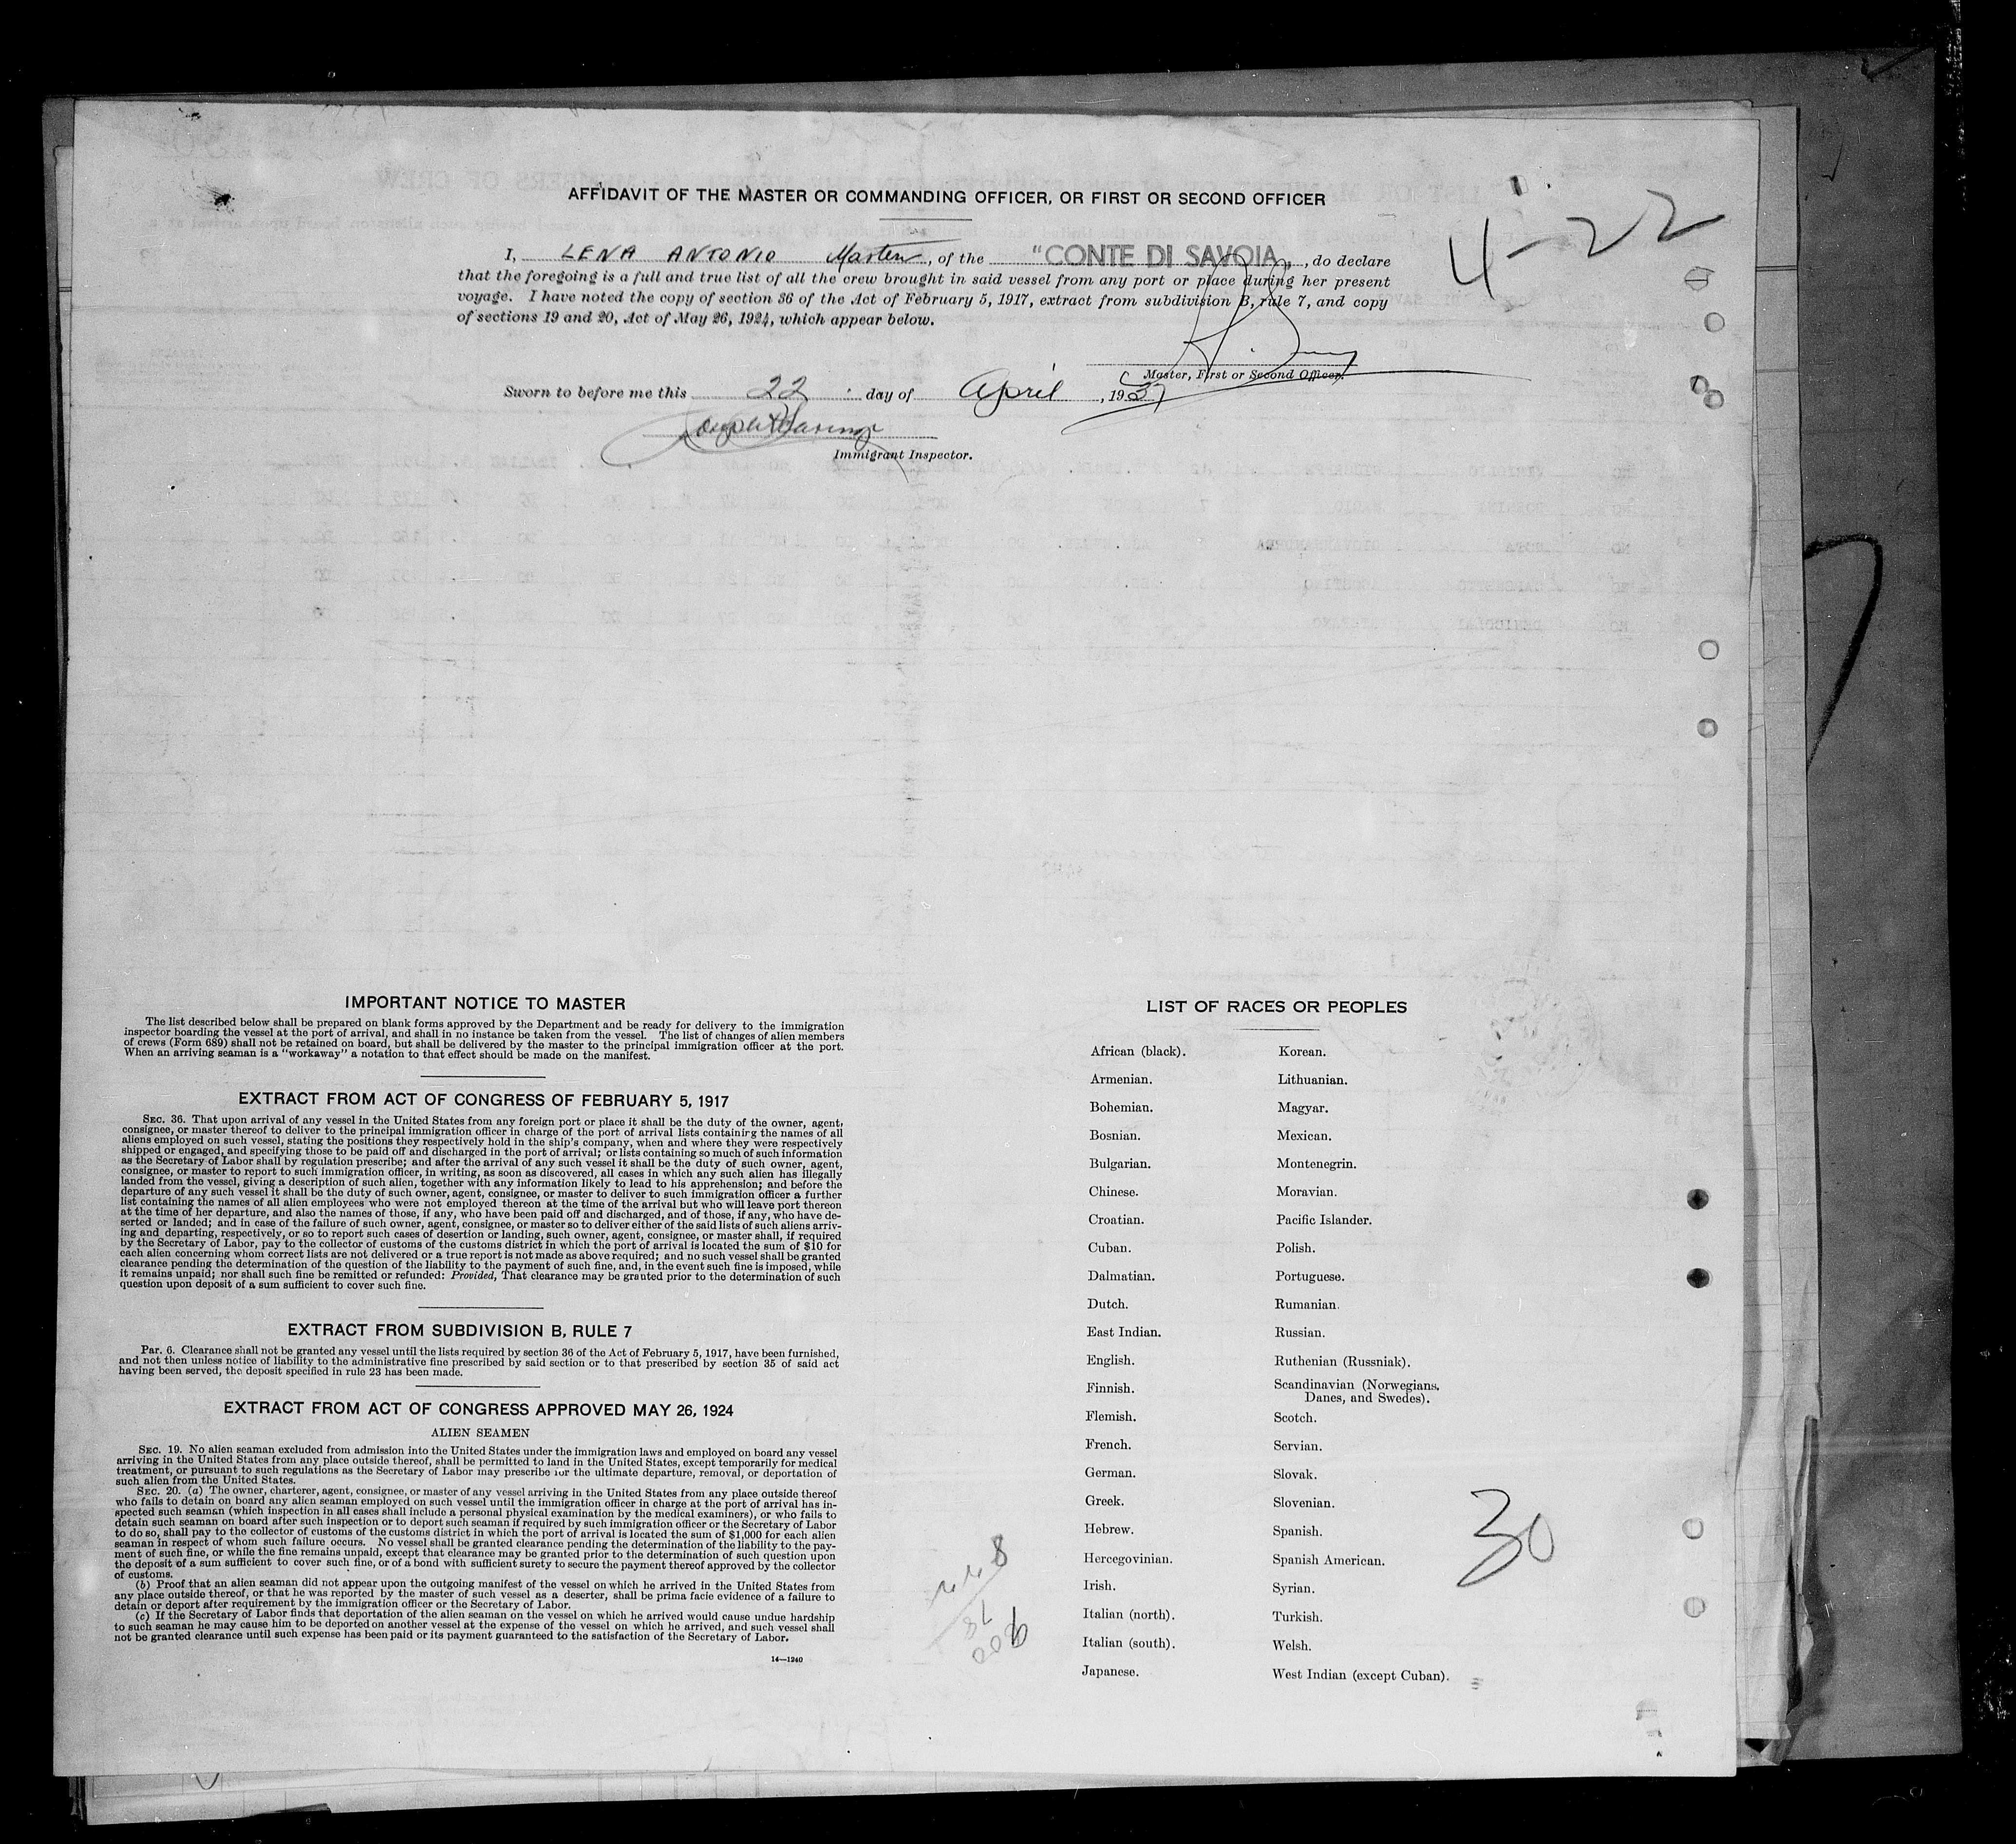 AFFIDAVIT OF THE MASTER OR COMMANDING OFFICER, OR FIRST OR SECOND OFFICER
4-22
I, LENA ANTONIO Master, of the "CONTE DI SAVOIA", do declare
that the foregoing is a full and true list of all the crew brought in said vessel from any port or place during her present
voyage. I have noted the copy of section 36 of the Act of February 5, 1917, extract from subdivision B, rule 7, and copy
of sections 19 and 20, Act of May 26, 1924, which appear below.
Master, First or Second Officer.
Sworn to before me this 22 day of April, 1937
Immigrant Inspector.
IMPORTANT NOTICE TO MASTER
The list described below shall be prepared on blank forms approved by the Department and be ready for delivery to the immigration
inspector boarding the vessel at the port of arrival, and shall in no instance be taken from the vessel. The list of changes of alien members
of crews (Form 689) shall not be retained on board, but shall be delivered by the master to the principal immigration officer at the port.
When an arriving seaman is a "workaway" a notation to that effect should be made on the manifest.
EXTRACT FROM ACT OF CONGRESS OF FEBRUARY 5, 1917
SEC. 36. That upon arrival of any vessel in the United States from any foreign port or place it shall be the duty of the owner, agent,
consignee, or master thereof to deliver to the principal immigration officer in charge of the port of arrival lists containing the names of all
aliens employed on such vessel, stating the positions they respectively hold in the ship's company, when and where they were respectively
shipped or engaged, and specifying those to be paid off and discharged in the port of arrival; or lists containing so much of such information
as the Secretary of Labor shall by regulation prescribe; and after the arrival of any such vessel it shall be the duty of such owner, agent,
consignee, or master to report to such immigration officer, in writing, as soon as discovered, all cases in which any such alien has illegally
landed from the vessel, giving a description of such alien, together with any information likely to lead to his apprehension; and before the
departure of any such vessel it shall be the duty of such owner, agent, consignee, or master to deliver to such immigration officer a further
list containing the names of all alien employees who were not employed thereon at the time of the arrival but who will leave port thereon
at the time of her departure, and also the names of those, if any, who have been paid off and discharged, and of those, if any, who have de-
serted or landed; and in case of the failure of such owner, agent, consignee, or master so to deliver either of the said lists of such aliens arriv-
ing and departing, respectively, or so to report such cases of desertion or landing, such owner, agent, consignee, or master shall, if required
by the Secretary of Labor, pay to the collector of customs of the customs district in which the port of arrival is located the sum of $10 for
each alien concerning whom correct lists are not delivered or a true report is not made as above required; and no such vessel shall be granted
clearance pending the determination of the question of the liability to the payment of such fine, and, in the event such fine is imposed, while
it remains unpaid; nor shall such fine be remitted or refunded: Provided, That clearance may be granted prior to the determination of such
question upon deposit of a sum sufficient to cover such fine.
EXTRACT FROM SUBDIVISION B, RULE 7
Par. 6. Clearance shall not be granted any vessel until the lists required by section 36 of the Act of February 5, 1917, have been furnished,
and not then unless notice of liability to the administrative fine prescribed by said section or to that prescribed by section 35 of said act
having been served, the deposit specified in rule 23 has been made.
EXTRACT FROM ACT OF CONGRESS APPROVED MAY 26, 1924
ALIEN SEAMEN
SEC. 19. No alien seaman excluded from admission into the United States under the immigration laws and employed on board any vessel
arriving in the United States from any place outside thereof, shall be permitted to land in the United States, except temporarily for medical
treatment, or pursuant to such regulations as the Secretary of Labor may prescribe for the ultimate departure, removal, or deportation of
such alien from the United States.
SEC. 20. (a) The owner, charterer, agent, consignee, or master of any vessel arriving in the United States from any place outside thereof
who fails to detain on board any alien seaman employed on such vessel until the immigration officer in charge at the port of arrival has in-
spected such seaman (which inspection in all cases shall include a personal physical examination by the medical examiners), or who fails to
detain such seaman on board after such inspection or to deport such seaman if required by such immigration officer or the Secretary of Labor
to do so, shall pay to the collector of customs of the customs district in which the port of arrival is located the sum of $1,000 for each alien
seaman in respect of whom such failure occurs. No vessel shall be granted clearance pending the determination of the liability to the pay-
ment of such fine, or while the fine remains unpaid, except that clearance may be granted prior to the determination of such question upon
the deposit of a sum sufficient to cover such fine, or of a bond with sufficient surety to secure the payment thereof approved by the collector
of customs.
(b) Proof that an alien seaman did not appear upon the outgoing manifest of the vessel on which he arrived in the United States from
any place outside thereof, or that he was reported by the master of such vessel as a deserter, shall be prima facie evidence of a failure to
detain or deport after requirement by the immigration officer or the Secretary of Labor.
(c) If the Secretary of Labor finds that deportation of the alien seaman on the vessel on which he arrived would cause undue hardship
to such seaman he may cause him to be deported on another vessel at the expense of the vessel on which he arrived, and such vessel shall
not be granted clearance until such expense has been paid or its payment guaranteed to the satisfaction of the Secretary of Labor.
14—1240
LIST OF RACES OR PEOPLES
African (black).
Armenian.
Bohemian.
Bosnian.
Bulgarian.
Chinese.
Croatian.
Cuban.
Dalmatian.
Dutch.
East Indian.
English.
Finnish.
Flemish.
French.
German.
Greek.
Hebrew.
Hercegovinian.
Irish.
Italian (north).
Italian (south).
Japanese.
Korean.
Lithuanian.
Magyar.
Mexican.
Montenegrin.
Moravian.
Pacific Islander.
Polish.
Portuguese.
Rumanian.
Russian.
Ruthenian (Russniak).
Scandinavian (Norwegians,
Danes, and Swedes).
Scotch.
Servian.
Slovak.
Slovenian.
Spanish.
Spanish American.
Syrian.
Turkish.
Welsh.
West Indian (except Cuban).
30